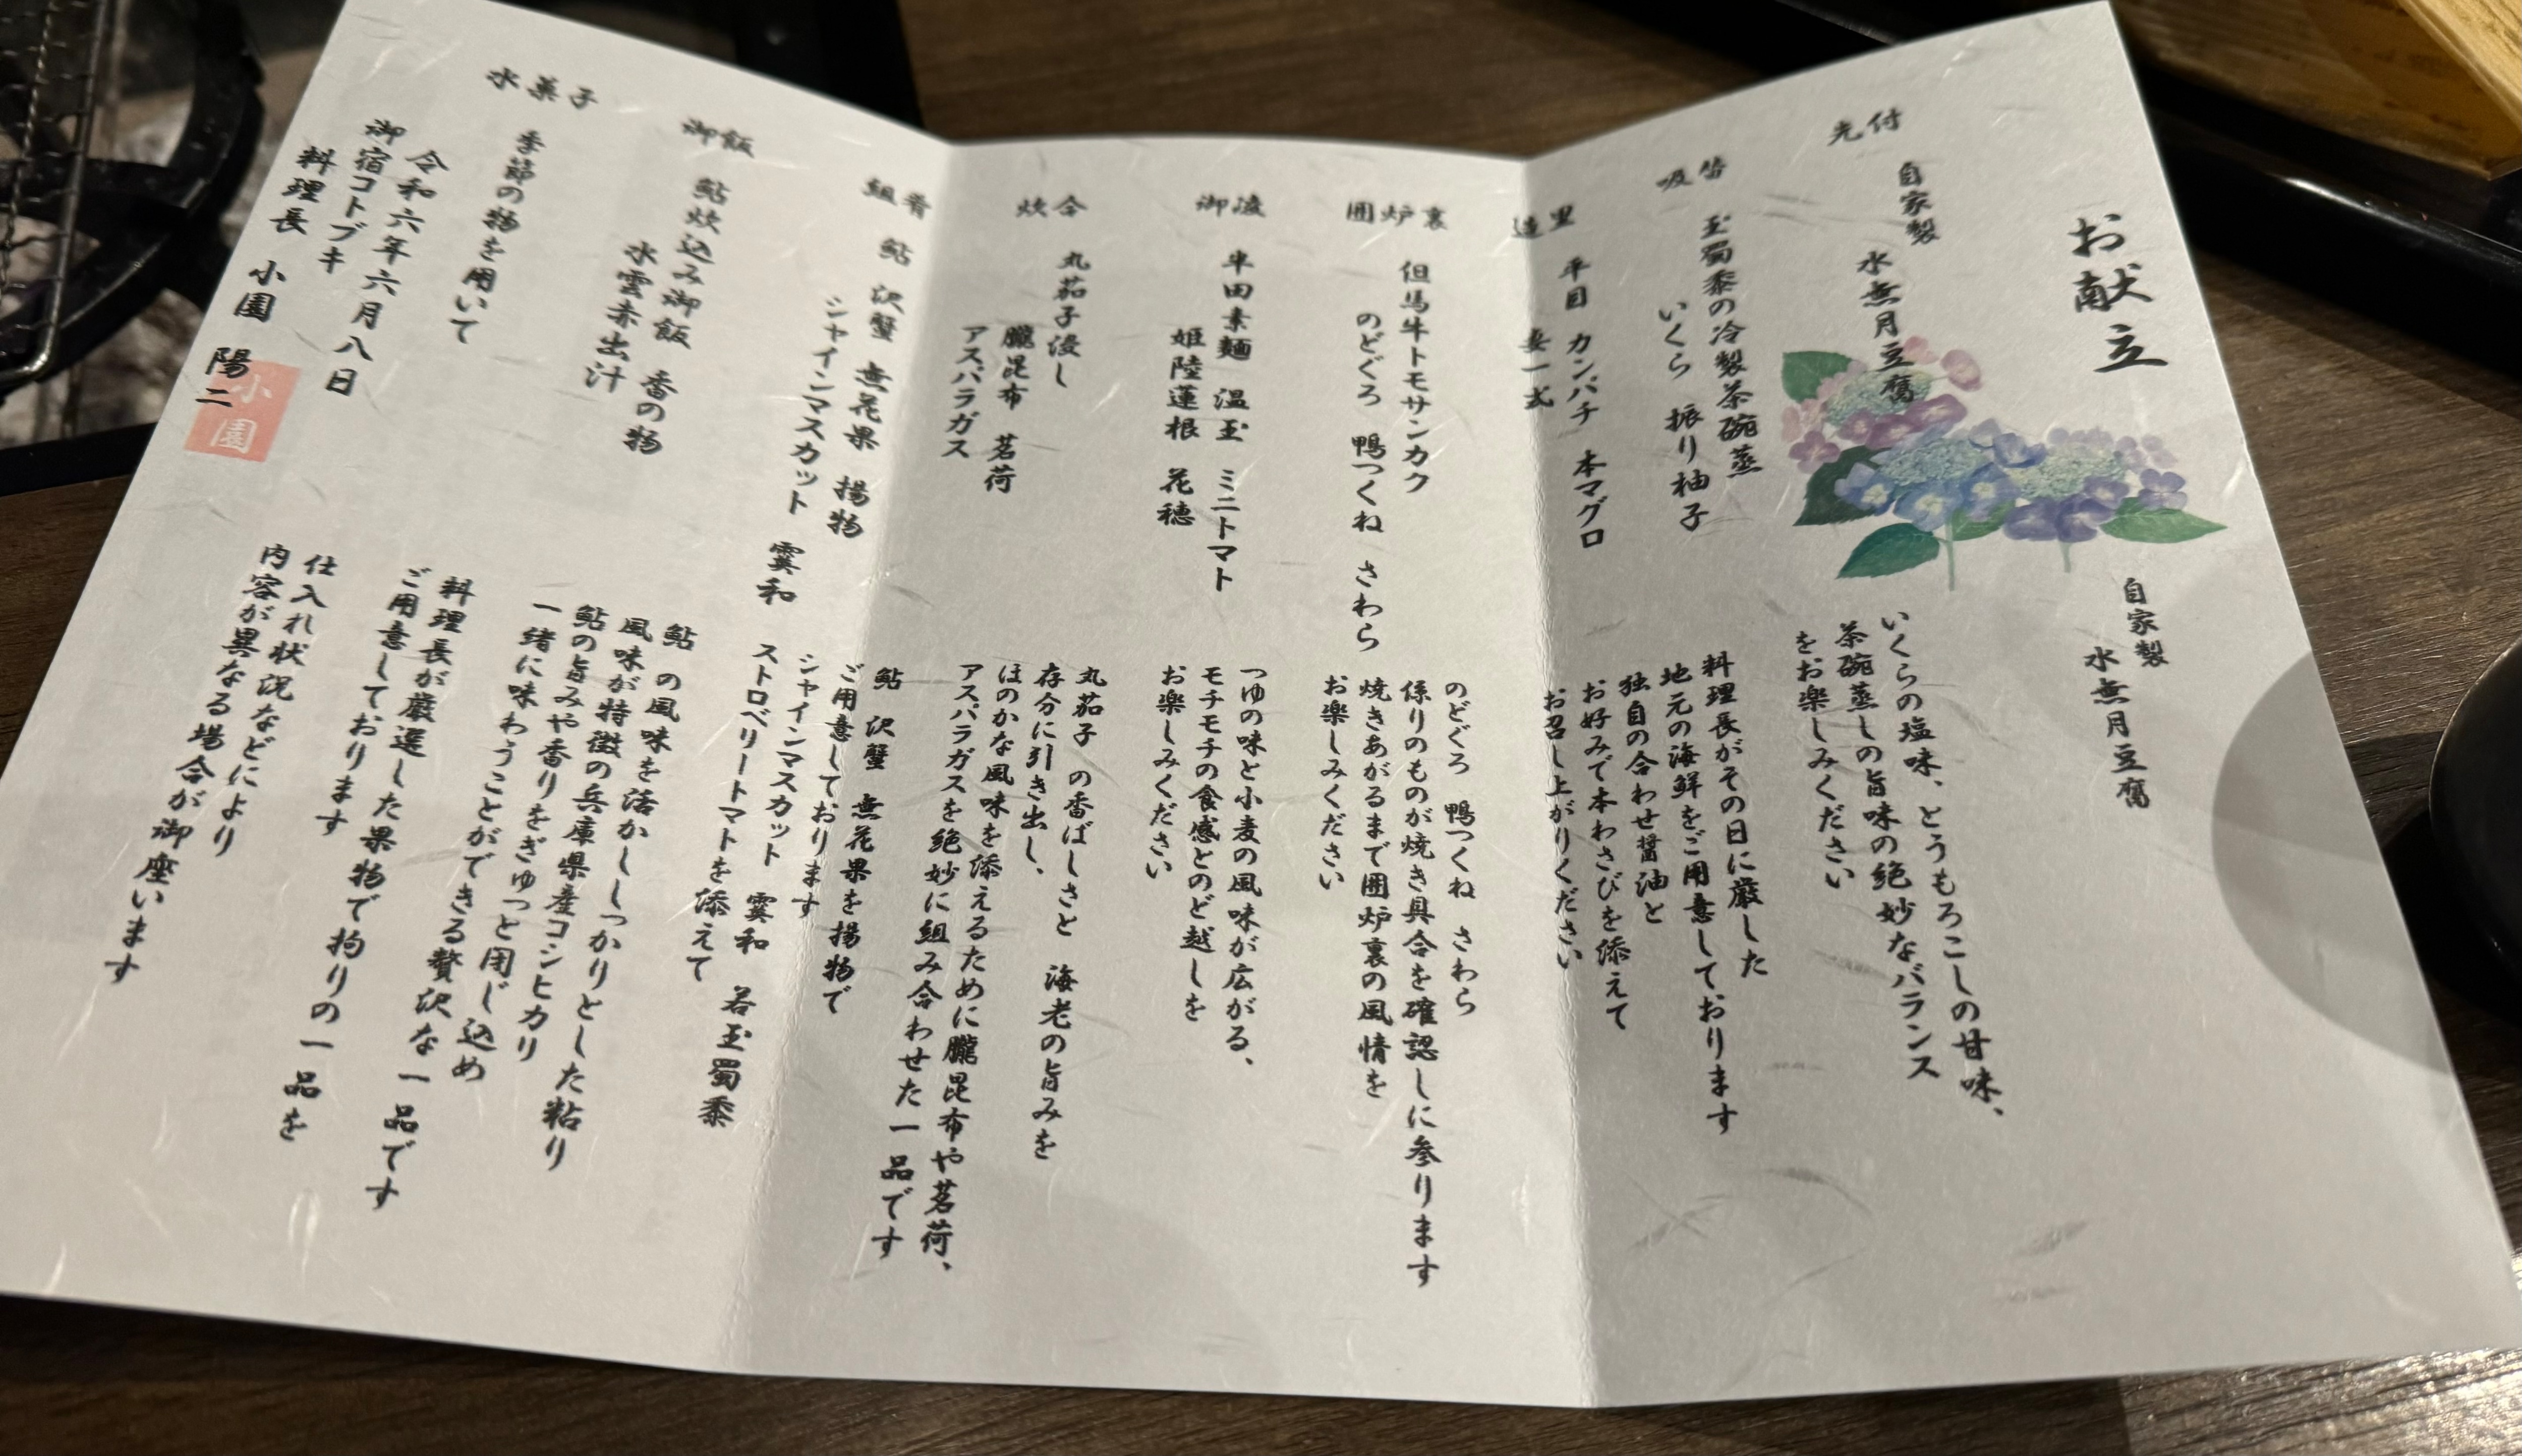 お献立
先付
自家製
水無月豆腐
自家製
水無月豆腐
吸替
玉蜀黍の冷製茶碗蒸
いくら 振り柚子
いくらの塩味、とうもろこしの甘味、
茶碗蒸しの旨味の絶妙なバランス
をお楽しみください
造里
平目 カンパチ 本マグロ
妻一式
料理長がその日に厳した
地元の海鮮をご用意しております
独自の合わせ醤油と
お好みで本わさびを添えて
お召し上がりください
囲炉裏
但馬牛トモサンカク
のどぐろ 鴨つくね さわら
のどぐろ 鴨つくね さわら
係りのものが焼き具合を確認しに参ります
焼きあがるまで囲炉裏の風情を
お楽しみください
御凌
半田素麺 温玉 ミニトマト
姫陸蓮根 花穂
つゆの味と小麦の風味が広がる、
モチモチの食感とのど越しを
お楽しみください
炊合
丸茄子浸し
朧昆布 茗荷
アスパラガス
丸茄子の香ばしさと 海老の旨みを
存分に引き出し、
ほのかな風味を添えるために朧昆布や茗荷、
アスパラガスを絶妙に組み合わせた一品です
組肴
鮎 沢蟹 無花果 揚物
シャインマスカット 霙和
鮎 沢蟹 無花果を揚物で
ご用意しております
シャインマスカット 霙和 若玉蜀黍
ストロベリートマトを添えて
御飯
鮎炊込み御飯 香の物
水雲赤出汁
鮎の風味を活かししっかりとした粘り
風味が特徴の兵庫県産コシヒカリ
鮎の旨みや香りをぎゅっと閉じ込め
一緒に味わうことができる贅沢な一品です
水菓子
季節の物を用いて
料理長が厳選した果物で拘りの一品を
ご用意しております
令和六年六月八日
御宿コトブキ
料理長 小園 陽二
小園
仕入れ状況などにより
内容が異なる場合が御座います